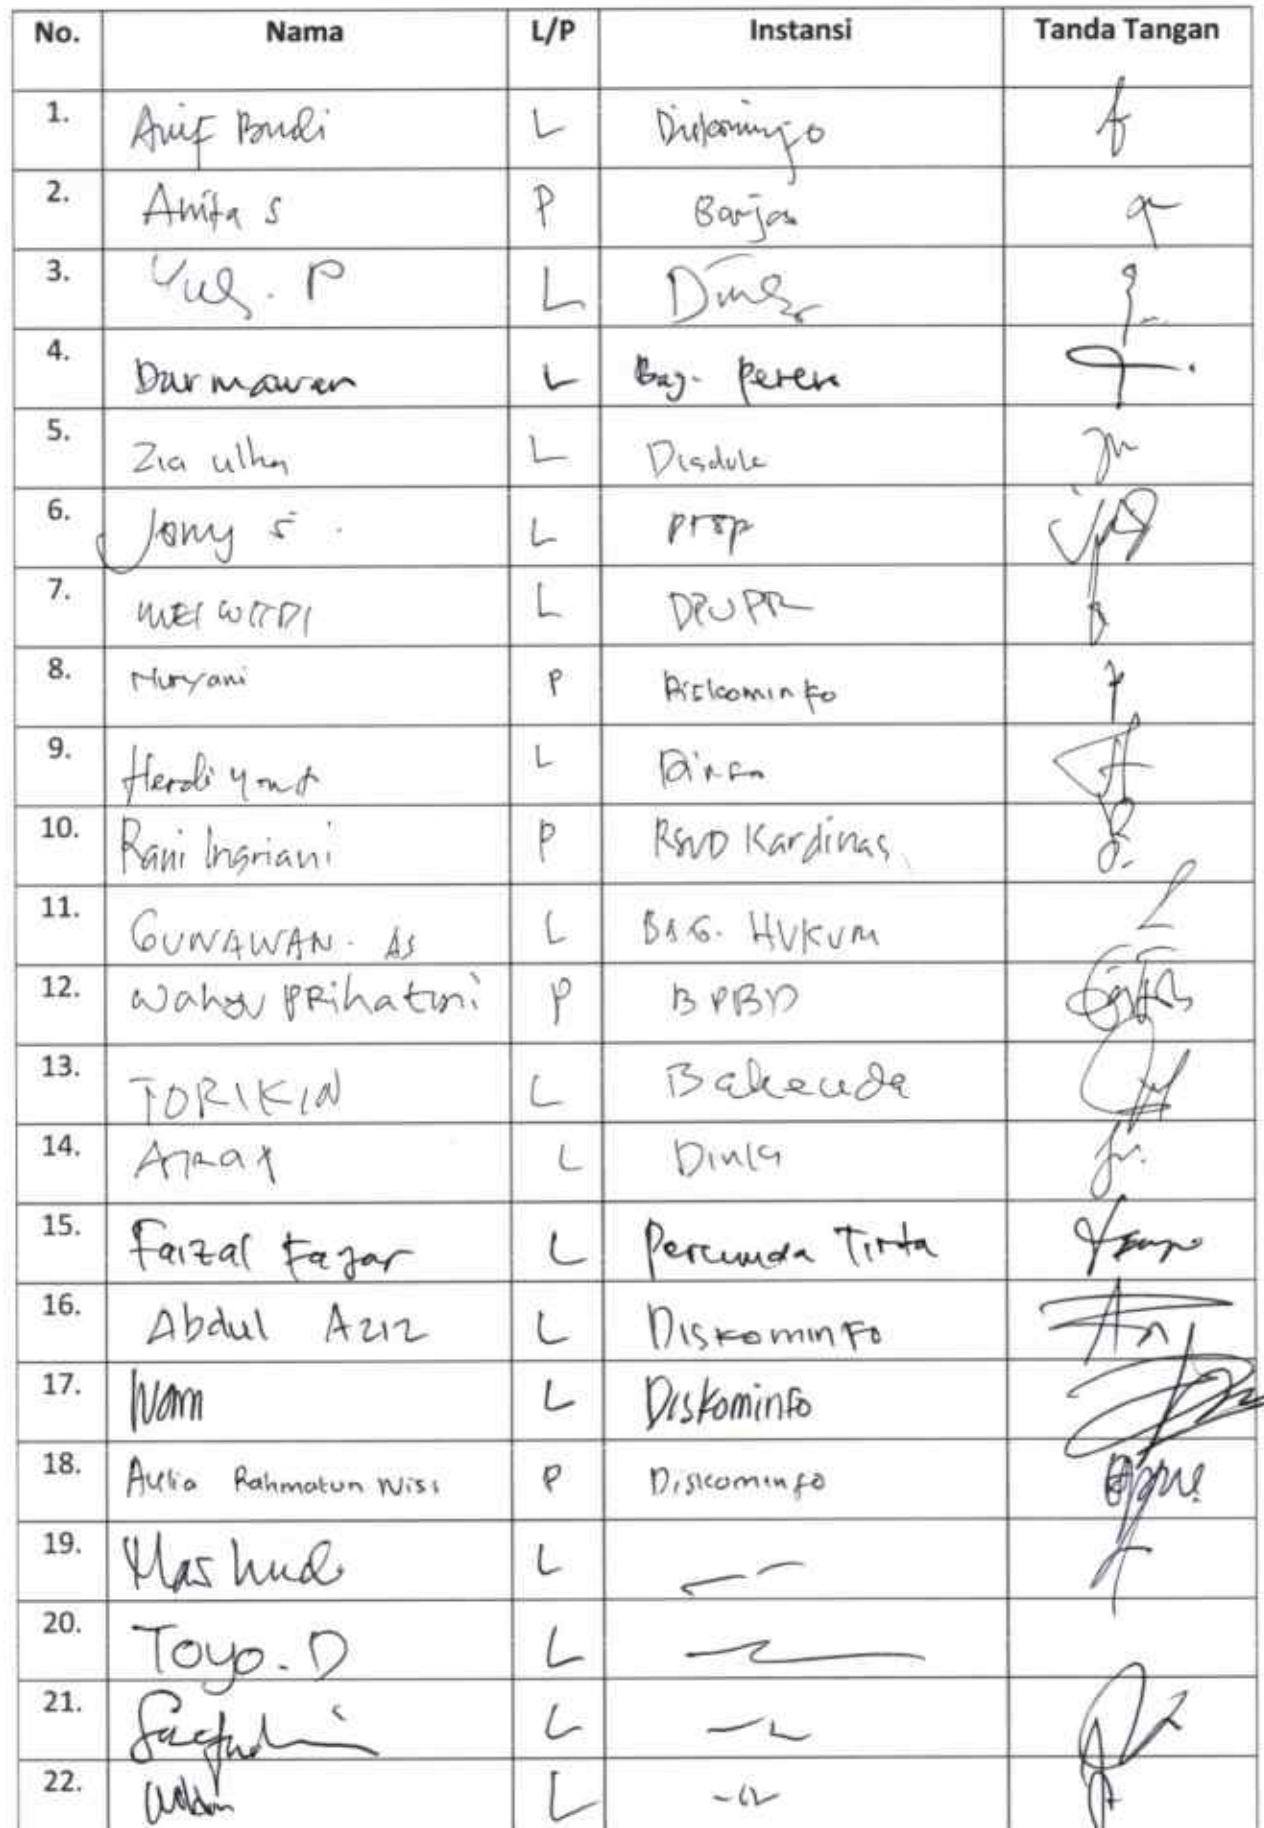 No. Nama L/P Instansi Tanda Tangan
1. Arif Budi L Diskominfo
2. Anita S P Barjas
3. P L
4. Darmawan L Bag. Peren
5. Zia ulhaq L Disduk
6. Jony S. L PTSP
7. MEI WITDI L DPUPR
8. Nuryani P Diskominfo
9. Herdiyant L
10. Rani Ingriani P RSUD Kardinas
11. GUNAWAN. AS L BAG. HUKUM
12. Wahyu PRihatini P BPBD
13. TORIKIN L Bakeuda
14. L
15. Faizal Fajar L Perumda Tirta
16. Abdul Aziz L Diskominfo
17. L Diskominfo
18. Aulia Rahmatun Niss P Diskominfo
19. Mashudi L
20. Toyo. D L
21. Saefudin L
22. L